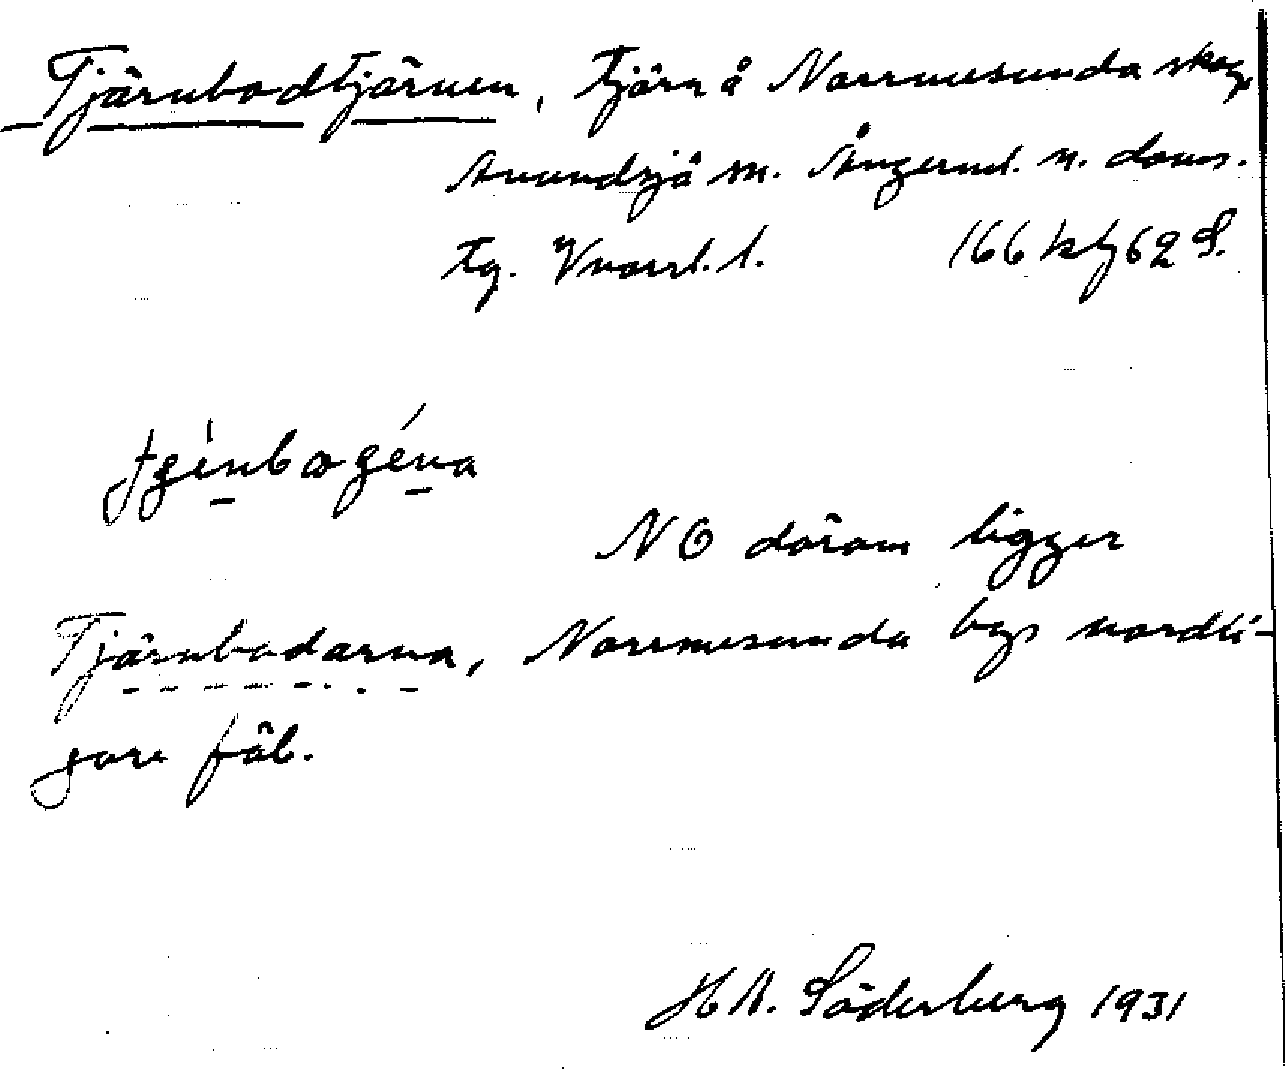 Tjärnbodtjärnen, tjärn å Norrmesunda skog,
Anundsjö sn. Ångerml. n. doms.
tg. Vnorrl. l. 166 kbl 62 S.
NO därom ligger
Tjärnbodarna, Norrmesunda bys nordli-
gare fäb.
H A. Söderberg 1931